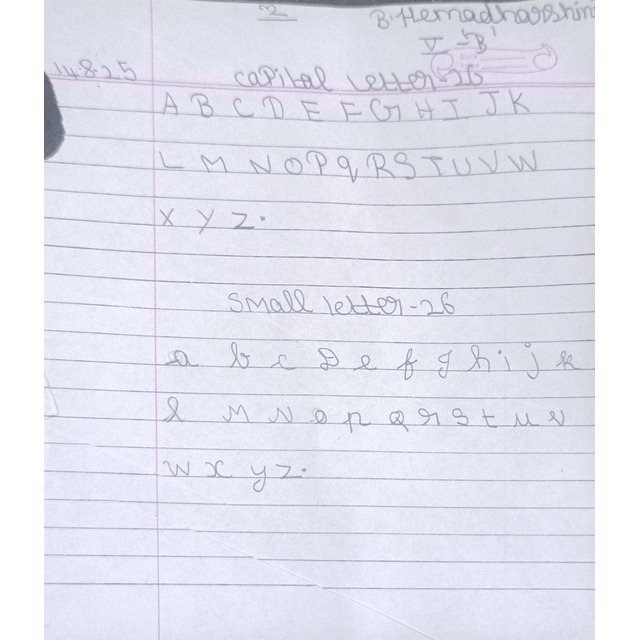 2
B. Hemadharshini
V - B
14.8.25
Capital letter 26
A B C D E F G H I J K
L M N O P q R S T U V W
X Y Z.
Small letter - 26
a b c D e f g h i j k
l M N o p Q r s t u v
w x y z.